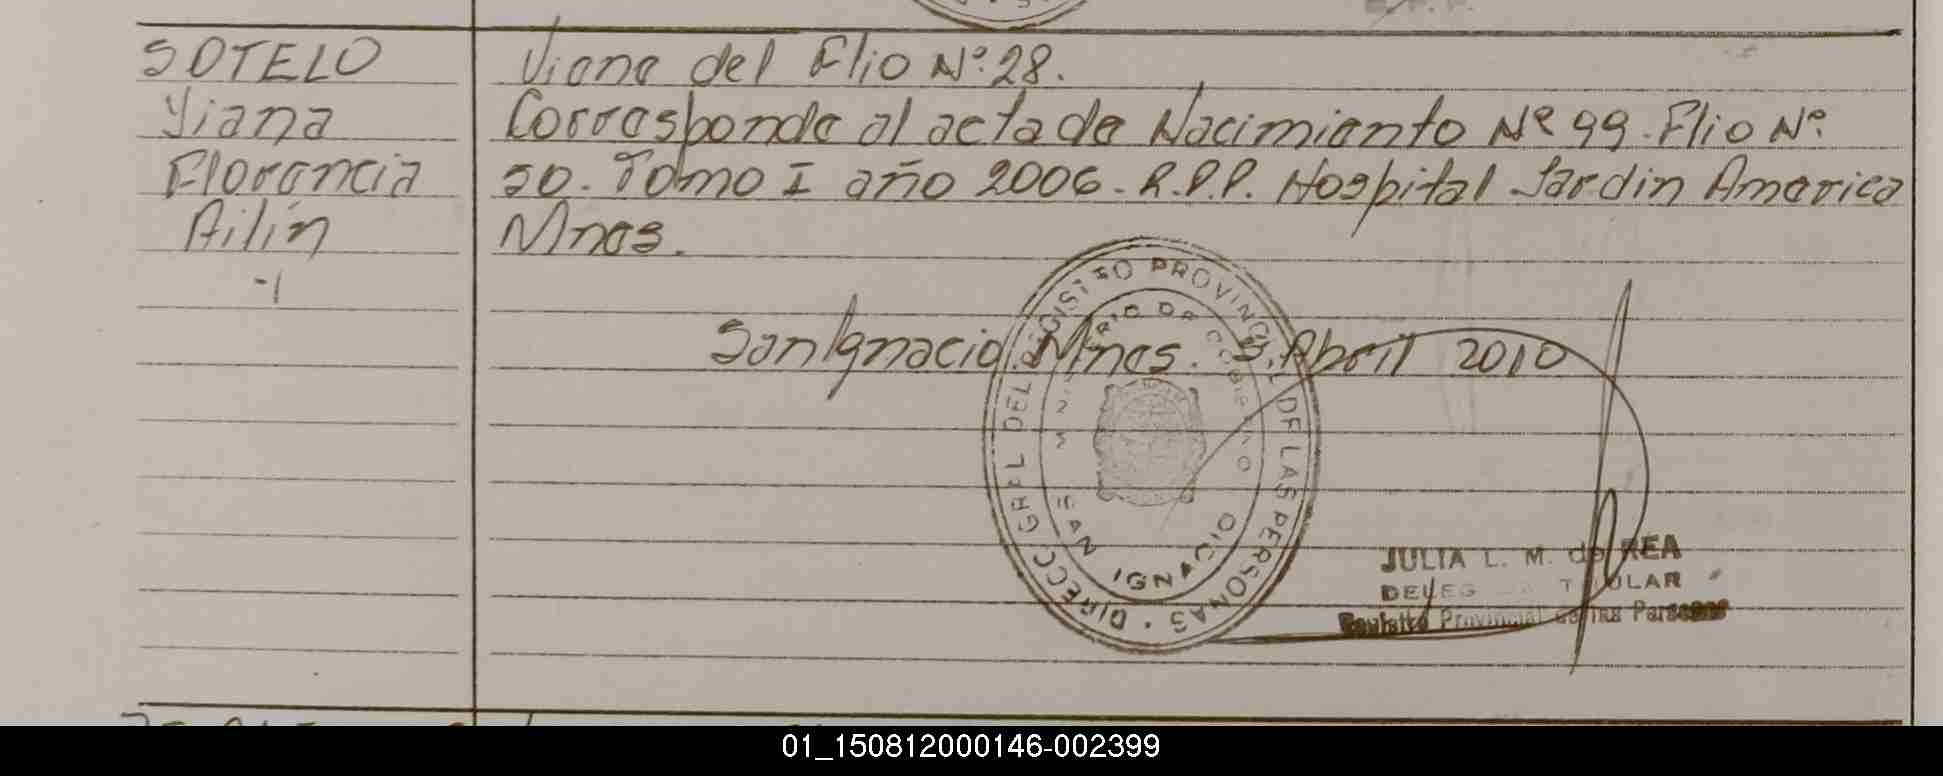 SOTELO
Yiana
Florencia
Ailín
-1
Viene del Flio Nº 28.
Corresponde al acta de Nacimiento Nº 99. Flio Nº
50. Tomo I año 2006. R.P.P. Hospital Jardin America
Mnes.
San Ignacio Mnes. 5 Abril 2010
DIRECC. GRAL DEL REGISTRO PROVINCIAL DE LAS PERSONAS
JULIA L. M. de REA
TITULAR
Provincial de las Personas
01_150812000146-002399